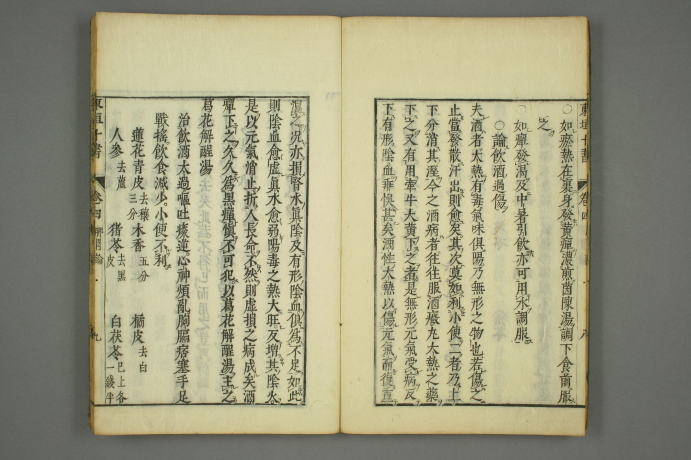 東垣十書 卷四
○如瘀熱在裏身發黃疸濃煎茵陳湯調下食前服
之
○如瘧發渴及中暑引飲亦可用水調服
○論飲酒過傷
夫酒者大熱有毒氣味俱陽乃無形之物也若傷之
止當發散汗出則愈矣其次莫如利小便二者乃上
下分消其濕今之酒病者往往服酒癥丸大熱之藥
下之又有用牽牛大黃下之者是無形元氣受病反
下有形陰血乖悞甚矣酒性大熱以傷元氣而復重
瀉之況亦損腎水真陰及有形陰血俱爲不足如此
則陰血愈虛真水愈弱陽毒之熱大旺反增其陰火
是以元氣消止折人長命不然則虛損之病成矣酒
疸下之久久爲黑疸慎不可犯以葛花解酲湯主之
葛花解酲湯
治飲酒太過嘔吐痰逆心神煩亂胸膈痞塞手足
戰搖飲食減少小便不利
蓮花青皮去穰三分 木香五分 橘皮去白
人參去蘆 猪苓去黑皮 白茯苓已上各一錢半
東垣十書 卷四 九